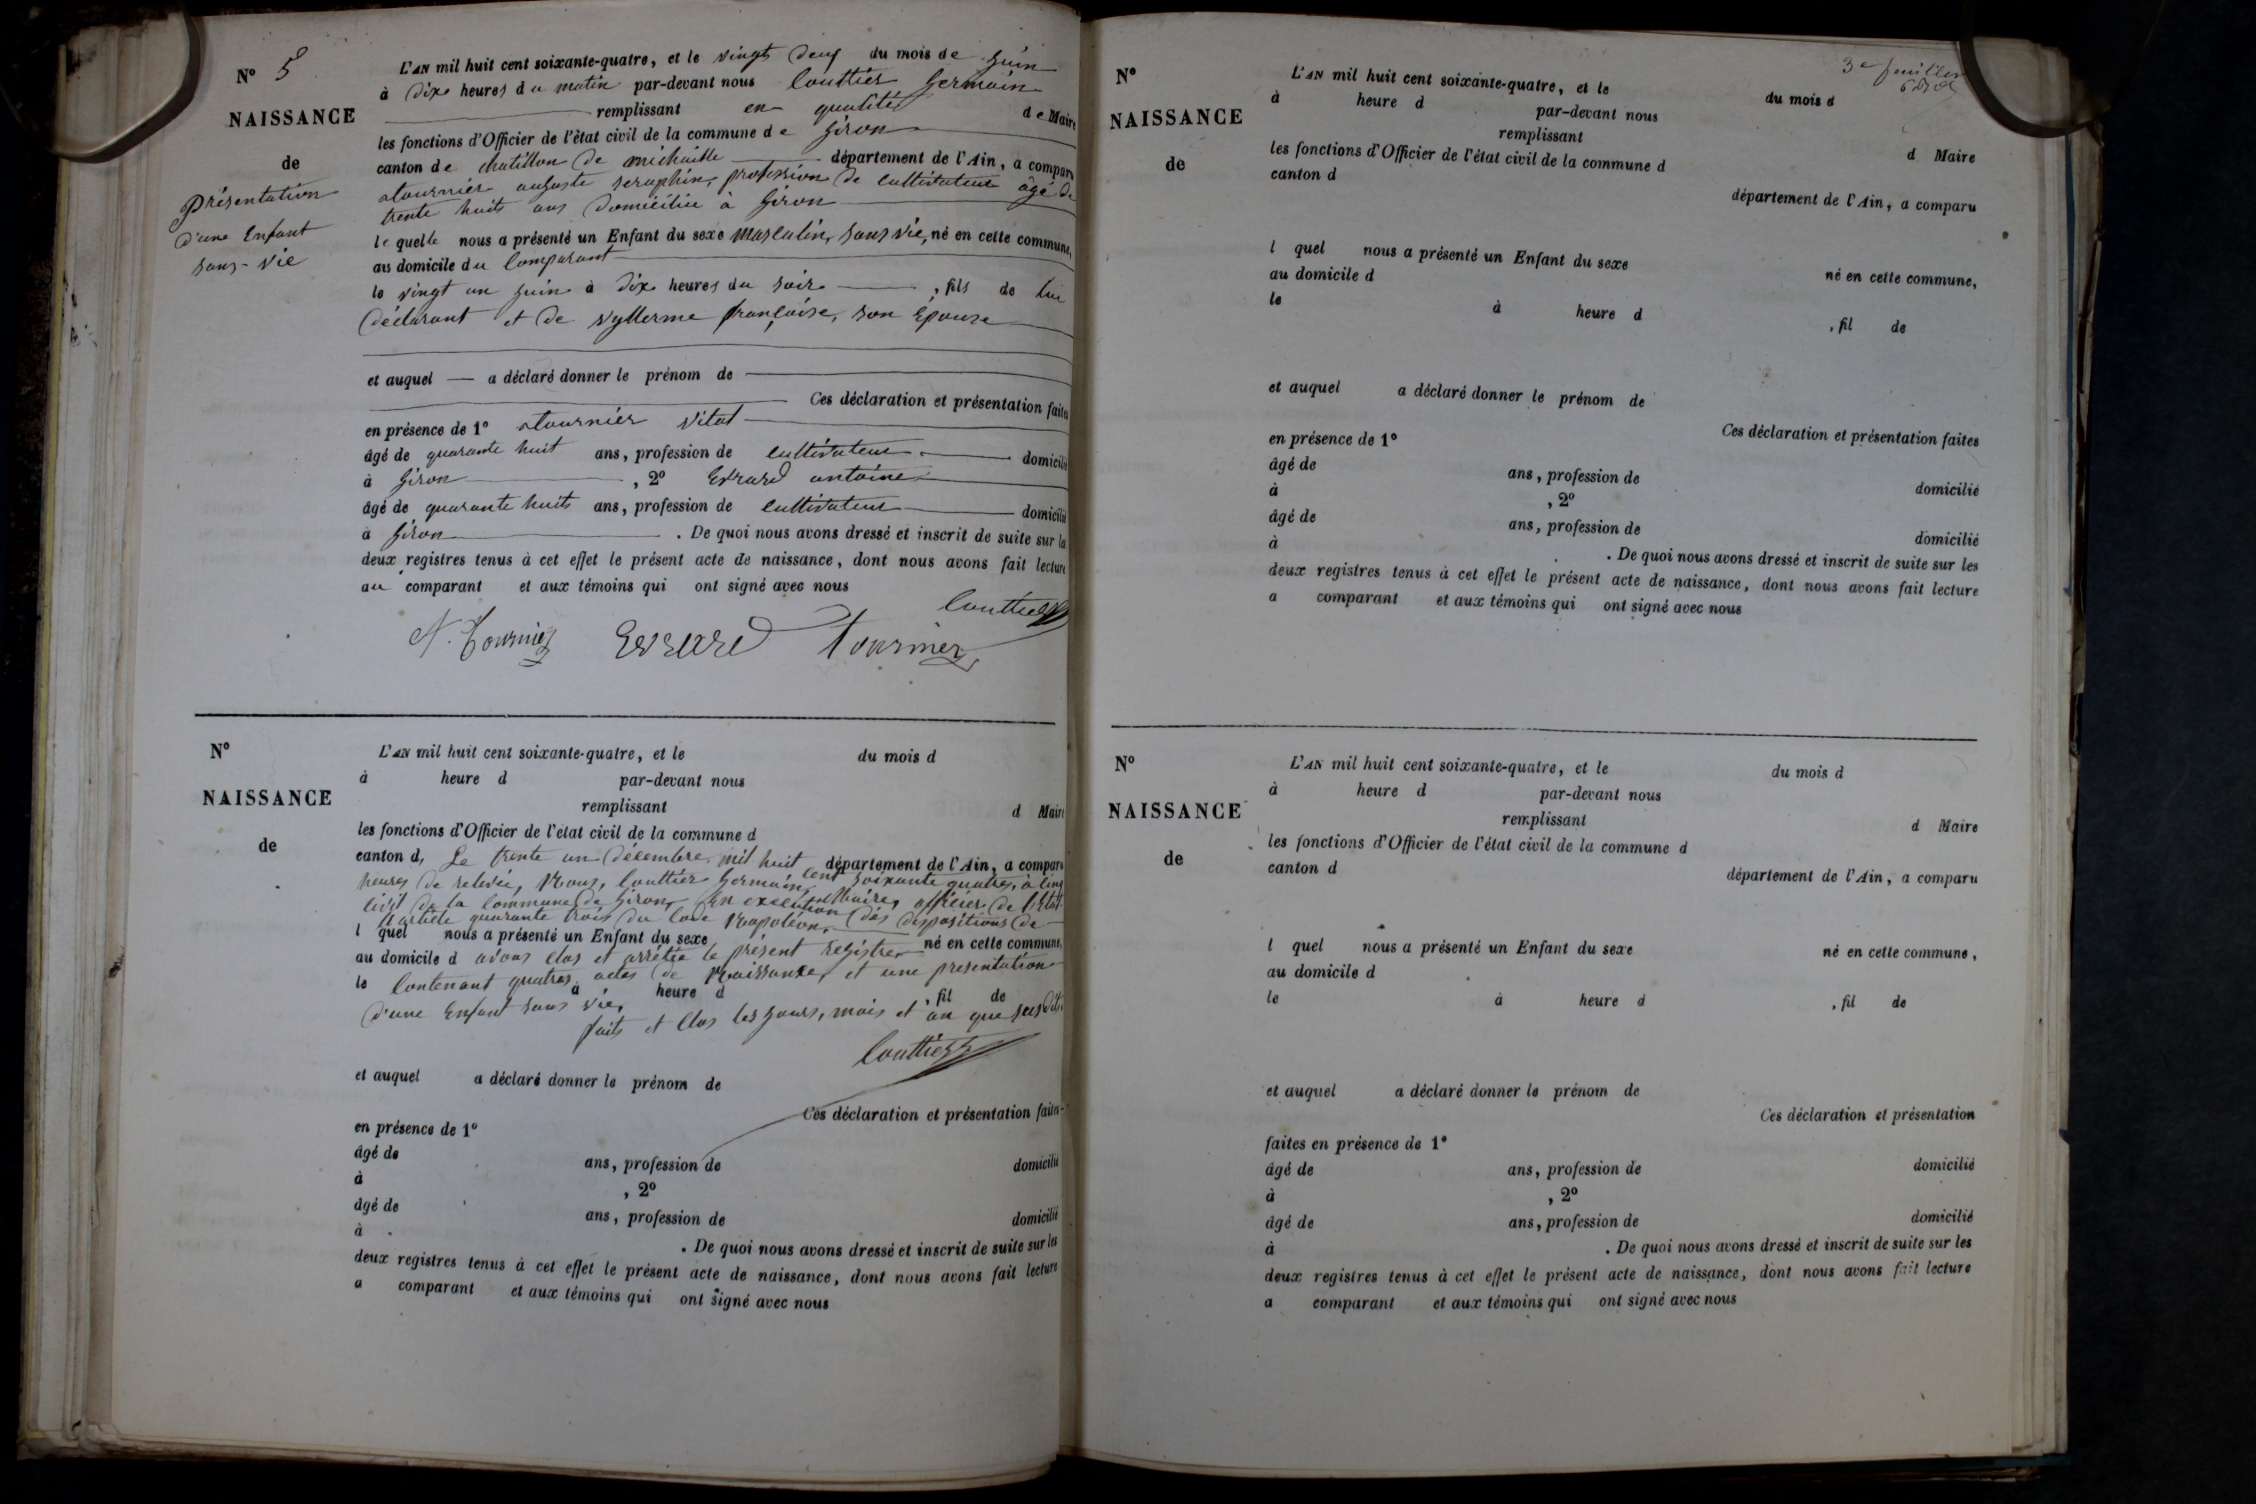 N° 5
NAISSANCE
de
Présentation
d'une Enfant
sans-vie
L'AN mil huit cent soixante-quatre, et le vingt deux du mois de Juin
à dix heures du matin par-devant nous Couttier Germain
remplissant en qualité de Maire
les fonctions d'Officier de l'état civil de la commune de Giron
canton de chatillon de michaille département de l'Ain, a comparu
tournier auguste seraphin, profession de cultivateur âgé de
trente huit ans domicilié à Giron
lequelle nous a présenté un Enfant du sexe masculin, sans vie, né en cette commune,
au domicile du Comparant
le vingt un Juin à dix heures du soir, fils de lui
déclarant et de Vuillerme françoise, son Épouse
et auquel a déclaré donner le prénom de
Ces déclaration et présentation faites
en présence de 1° tournier Vital
âgé de quarante huit ans, profession de cultivateur domicilié
à Giron, 2° Evrard antoine
âgé de quarante huit ans, profession de cultivateur domicilié
à Giron. De quoi nous avons dressé et inscrit de suite sur la
deux registres tenus à cet effet le présent acte de naissance, dont nous avons fait lecture
au comparant et aux témoins qui ont signé avec nous
Couttier
Tournier Evrard tournier
N°
NAISSANCE
de
L'AN mil huit cent soixante-quatre, et le du mois d
à heure d par-devant nous
remplissant d Maire
les fonctions d'Officier de l'état civil de la commune d
canton d département de l'Ain, a comparu
Le trente un Décembre mil huit cent soixante quatre, à cinq
heures de relevée, Nous, Couttier Germain, Maire, officier de l'Etat
civil de la Commune de Giron, En exécution des dispositions de
l'article quarante trois du Code Napoléon,
l quel nous a présenté un Enfant du sexe né en cette commune,
au domicile d
avons clos et arrêtée le présent registre
le à heure d , fil de
Contenant quatres actes de Naissance, et une présentation
d'une Enfant sans vie,
faits et Clos les jours, mois et an que susdits
Couttier
et auquel a déclaré donner le prénom de
Ces déclaration et présentation faites
en présence de 1°
âgé de ans, profession de domicilié
à , 2°
âgé de ans, profession de domicilié
à . De quoi nous avons dressé et inscrit de suite sur les
deux registres tenus à cet effet le présent acte de naissance, dont nous avons fait lecture
a comparant et aux témoins qui ont signé avec nous
3e feuillet
N°
NAISSANCE
de
L'AN mil huit cent soixante-quatre, et le du mois d
à heure d par-devant nous
remplissant d Maire
les fonctions d'Officier de l'état civil de la commune d
canton d département de l'Ain, a comparu
l quel nous a présenté un Enfant du sexe né en cette commune,
au domicile d
le à heure d , fil de
et auquel a déclaré donner le prénom de
Ces déclaration et présentation faites
en présence de 1°
âgé de ans, profession de domicilié
à , 2°
âgé de ans, profession de domicilié
à . De quoi nous avons dressé et inscrit de suite sur les
deux registres tenus à cet effet le présent acte de naissance, dont nous avons fait lecture
a comparant et aux témoins qui ont signé avec nous
N°
NAISSANCE
de
L'AN mil huit cent soixante-quatre, et le du mois d
à heure d par-devant nous
remplissant d Maire
les fonctions d'Officier de l'état civil de la commune d
canton d département de l'Ain, a comparu
l quel nous a présenté un Enfant du sexe né en cette commune,
au domicile d
le à heure d , fil de
et auquel a déclaré donner le prénom de
Ces déclaration et présentation
faites en présence de 1°
âgé de ans, profession de domicilié
à , 2°
âgé de ans, profession de domicilié
à . De quoi nous avons dressé et inscrit de suite sur les
deux registres tenus à cet effet le présent acte de naissance, dont nous avons fait lecture
a comparant et aux témoins qui ont signé avec nous